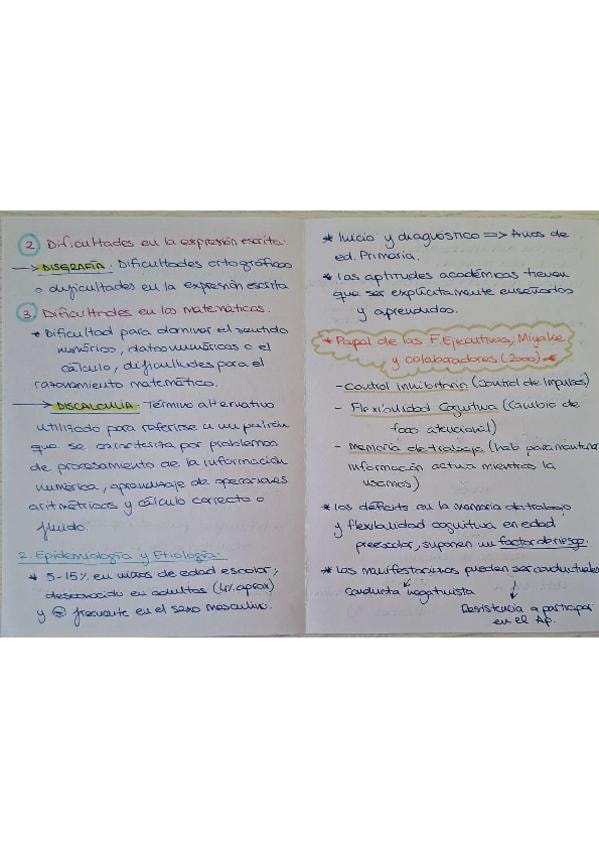 2 Dificultades en la expresión escrita:
→ DISGRAFÍA: Dificultades ortográficas
o dificultades en la expresión escrita
3 Dificultades en las matemáticas.
* Dificultad para dominar el sentido
numérico, datos numéricos o el
cálculo, dificultades para el
razonamiento matemático.
→ DISCALCULIA: Término alternativo
utilizado para referirse a un patrón
que se caracteriza por problemas
de procesamiento de la información
numérica, aprendizaje de operaciones
aritméticas y cálculo correcto o
fluido.
2. Epidemiología y Etiología:
* 5-15% en niños de edad escolar;
desconocido en adultos (4% aprox)
y frecuente en el sexo masculino.
* Inicio y diagnóstico => Años de
ed. Primaria.
* Las aptitudes académicas tienen
que ser explícitamente enseñadas
y aprendidas.
* Papel de las F. Ejecutivas, Miyake
y colaboradores (2000) *
- Control Inhibitorio (control de impulsos)
- Flexibilidad Cognitiva (Cambio de
foco atencional)
- Memoria de trabajo (hab para mantener
información activa mientras la
usamos)
* Los déficits en la memoria de trabajo
y flexibilidad cognitiva en edad
preescolar, suponen un factor de riesgo.
* Las manifestaciones pueden ser conductuales
conducta negativista
Resistencia a participar
en el Ap.